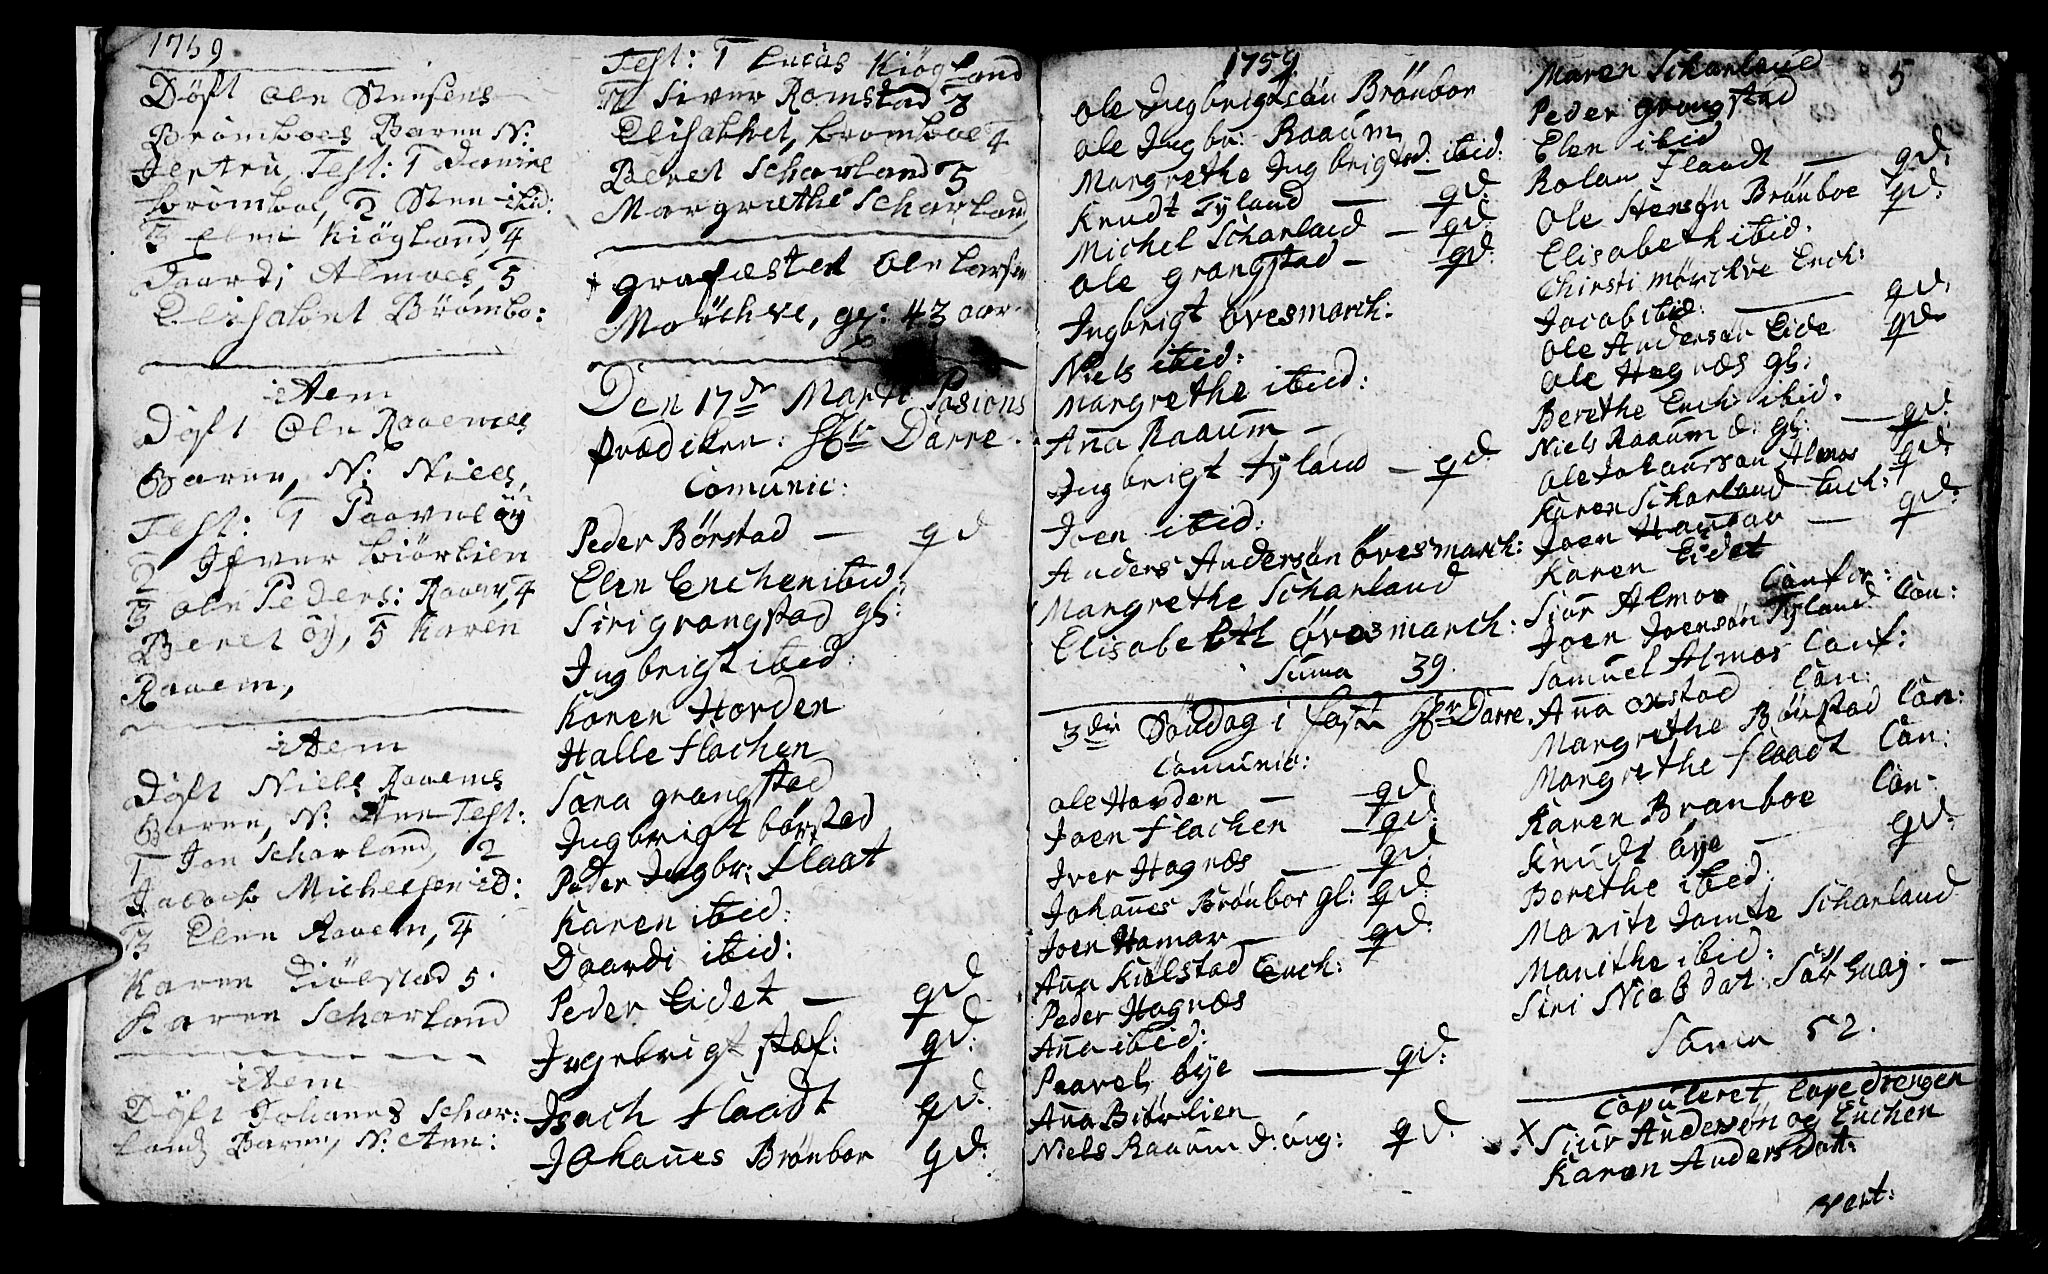 1759
Döft Ole Stensens
Brömboes Baren N:
Jertru, Test: 1
Bromboe, 2 Sten ibid:
3 Elen Kiögland, 4
Daardi Almoes, 5
Elisabet Brömbo:
item
Döft Ole Raaemes
Baren, N: Niels,
Test: 1 Paavel öy
2 Ifver biörlien
3 Ole Peders: Raaem, 4
Beret öy, 5 Karen
Raaem,
item
Döft Niels Raaems
Baren, N: Ane Test:
1 Jon Scharland, 2
Jacob Michelsen id:
3 Elen Raaem, 4
Karen Kiölstad 5.
Karen Scharland
item
Döft Johanes Schar:
lands Baren, N: Ane:
Test: 1 Lucas Kiögland
2 Siver Romstad 3
Elisabhet, bromboe 4
Beret Scharland 5
Margrethe Scharland
grafæstet Ole Larsen
Morchve, gl: 43 aar
Den 17de Marti Pasions
prædiken: Hr Darre.
Comunic:
Peder Börstad — qd
Elen Enchen ibid:
Siri grongstad gl:
Ingbrigt ibid:
Karen Horden
Halle Flachen
Sara grongstad
Ingbrigt börstad
Peder Ingbr: Flaat
Karen ibid:
Daardi ibid:
Peder Eidet — qd
Ingebrigt staf: qd:
Isach Flaadt qd:
Johanes Brönboe qd:
1759
Ole Ingbrigtsön Brönboe
Ole Ingbr: Raaum
Margrethe Ingbrigtsd: ibid:
Knudt Tyland — qd
Michel Scharland — qd:
Ole grongstad — qd:
Ingbrigt övesmarch:
Niels ibid:
Margrethe ibid:
Ana Raaum —
Ingbrigt Tyland — qd:
Joen ibid:
Anders Andersön övesmarch:
Margrethe Scharland
Elisabeth övesmarch:
Suma 39.
3die Söndag i faste Hr Darre.
Comunic:
Ole Horden — qd
Joen Flachen — qd:
Iver Hagnæs — qd
Johanes Brönboe gl: qd:
Joen Hamar — qd:
Ana Kiölstad Ench:
Peder Hagnæs
Ana ibid:
Paavel öye — qd:
Ana Biörlien
Niels Raaum d: ung: qd:
Maren Scharland 5
Peder grongstad
Elen ibid
Rolan Flaadt — qd:
Ole Stensön Brönboe qd:
Elisabeth ibid.
Chirsti Morchve Ench:
Jacob ibid: — qd.
Ole Anderson Eide qd.
Ole Hagnæs gl:
Berethe Ench: ibid.
Niels Raaum d: gl: — qd.
Ole Johanson Almos qd
Karen Scharland Ench:
Joen — qd:
Karen Eidet
Siör Almos Confir:
Joen Joensön Tyland Con:
Samuel Almos Conf:
Ana oxstad Con:
Margrethe Börstad Con:
Margrethe Flaadt Con:
Karen Branboe Con:
Knudt öye — qd:
Berethe ibid:
Marite Jamte Scharland
Marithe ibid:
Siri Nielsdat: Sör —
Suma 52.
Copuleret
X Siur Andersön og Enchen
Karen Andersdat:
vert: